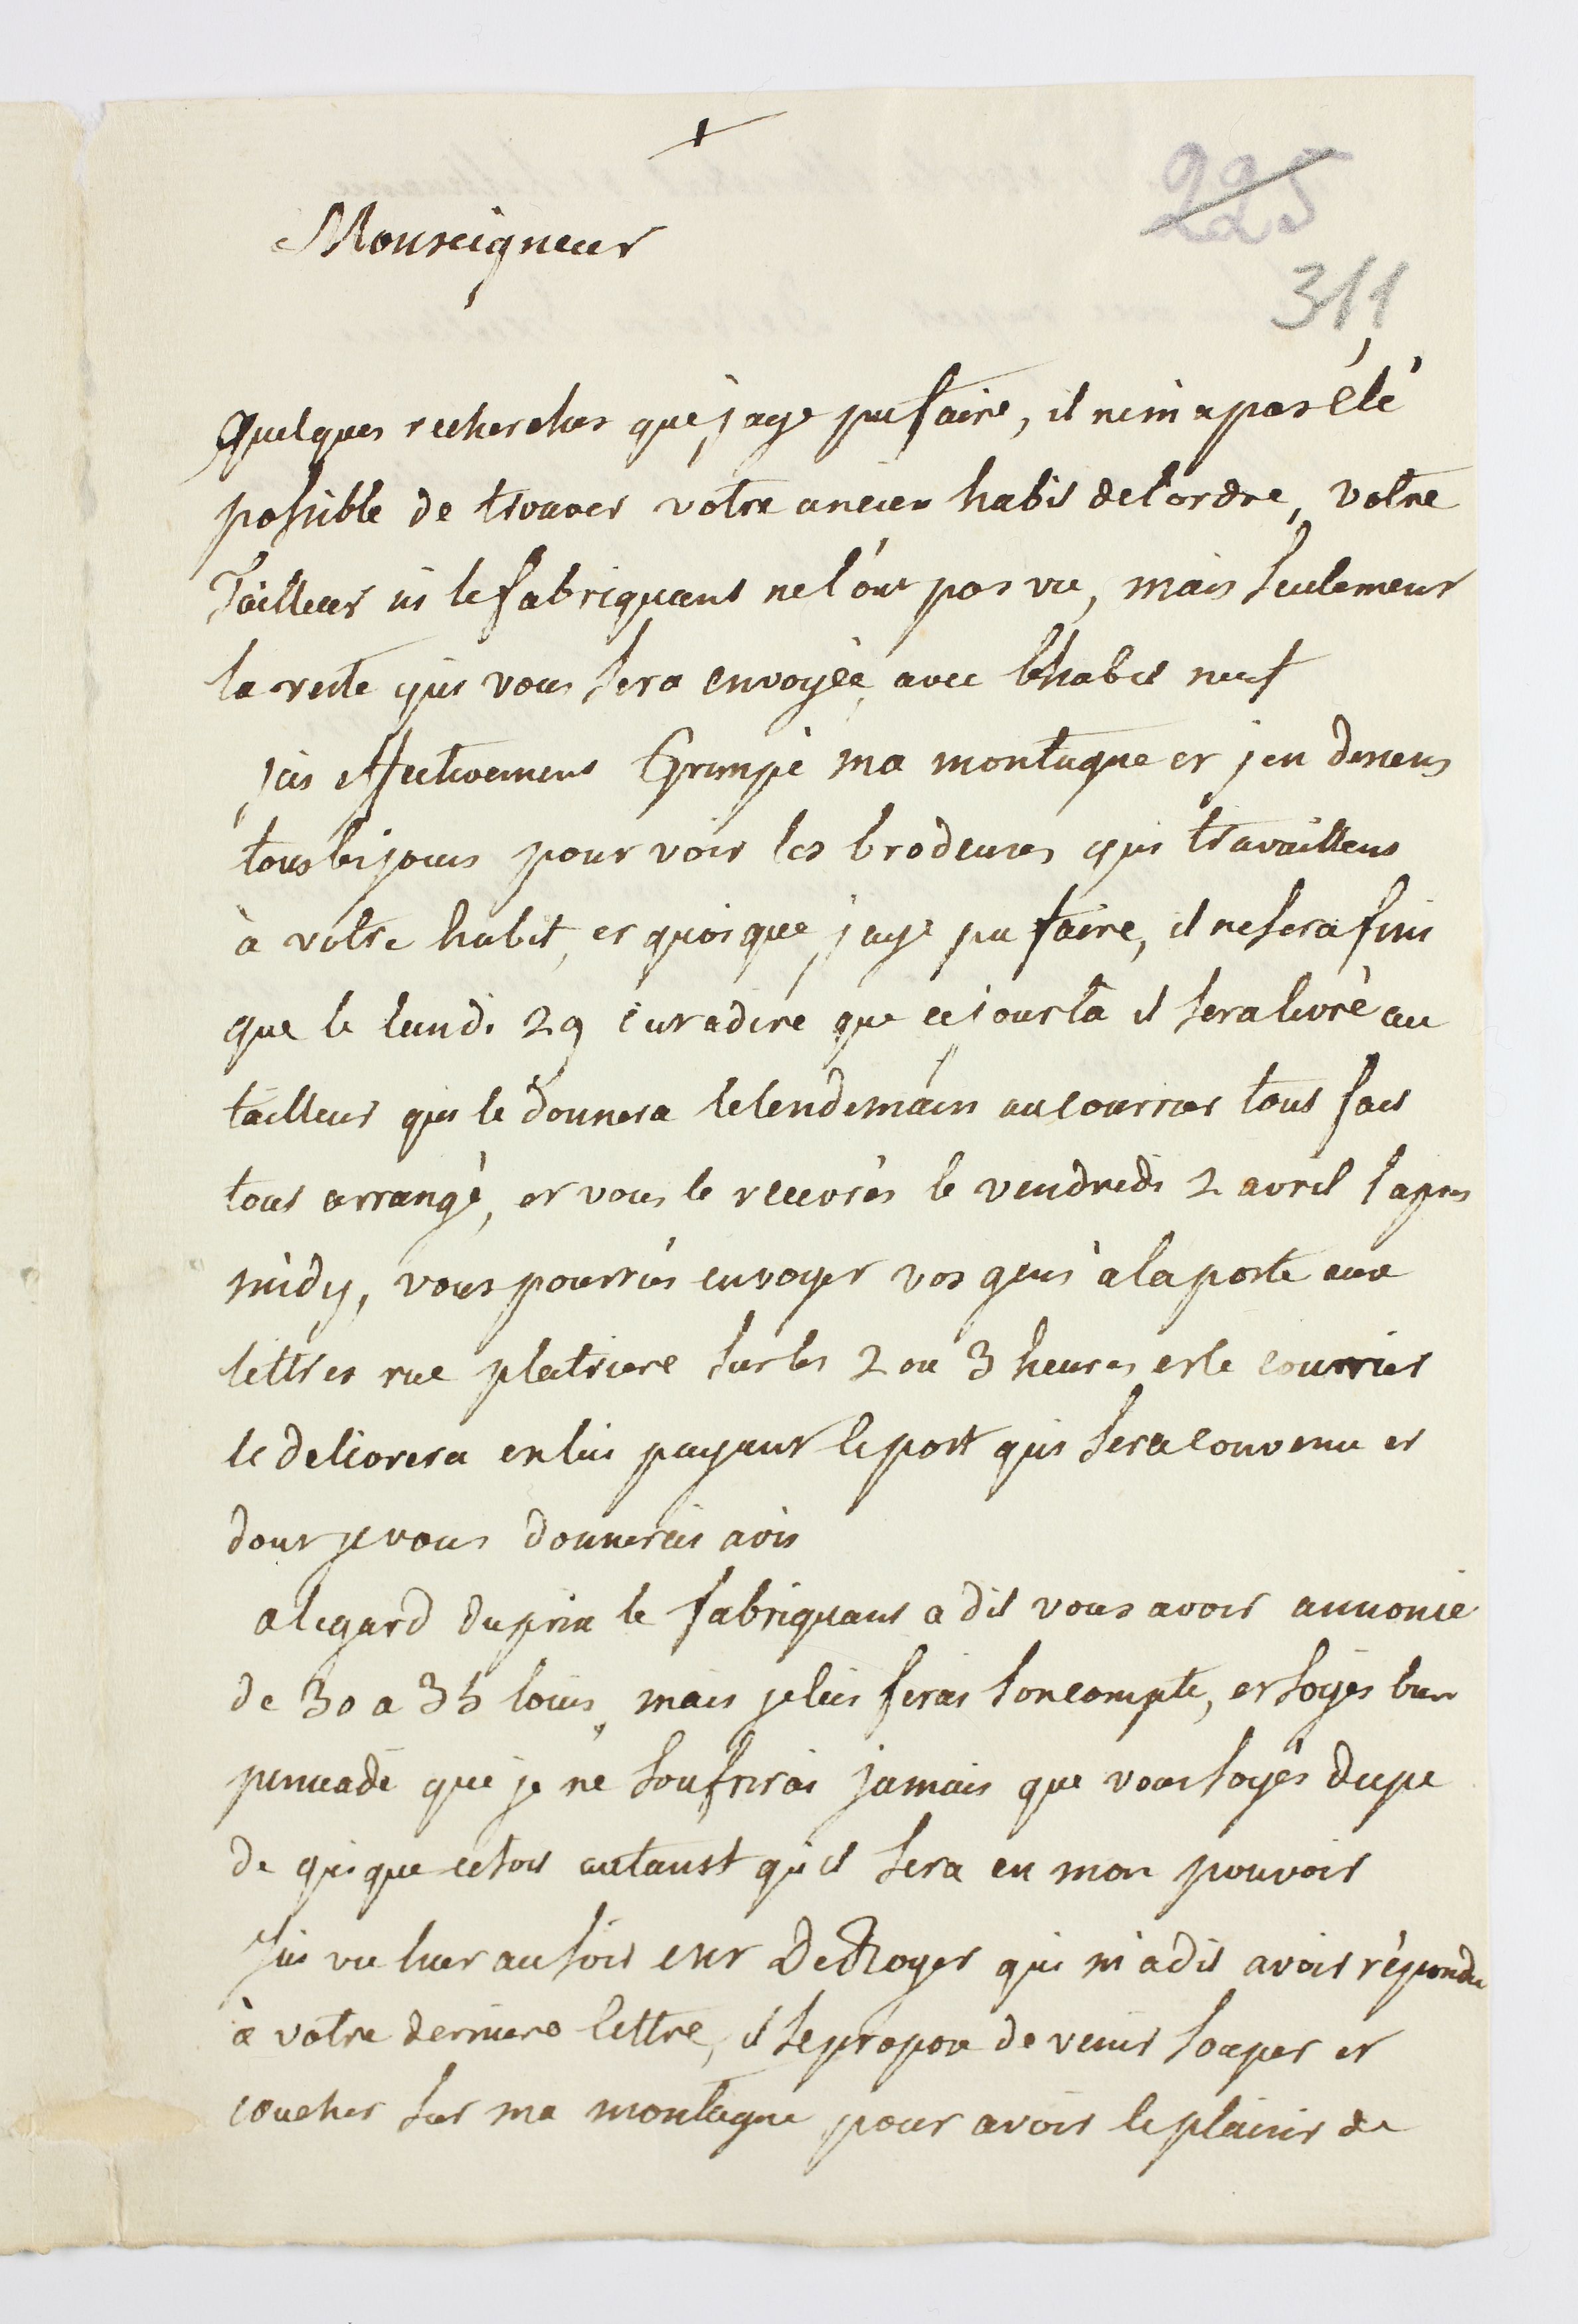 +
225
Monseigneur
311
Quelques recherches que j'aye pu faire, il ne m'a pas été
possible de trouver votre ancien habit de l'ordre, votre
Tailleur ni le fabriquant ne l'ont pas vu, mais seulement
la veste qui vous sera envoyée, avec l'habit neuf
j'ai effectivement Grimpé ma montagne et j'en dessens
tous les jours pour voir les brodeuses qui travaillent
à votre habit, et quoi que j'aye pu faire, il ne sera fini
que le lundi 29 c'est a dire que ce jour la il sera livré au
tailleur qui le donnera le lendemain au courrier tout fait
tout arrangé, et vous le recevrés le vendredi 2 avril l'apres
midy, vous pourriés envoyer vos gens à la poste aux
lettres rue platriere sur les 2 ou 3 heures et le courrier
le delivrera en lui payant le port qui sera convenu et
dont je vous donnerai avis
a l'egard du prix le fabriquant a dit vous avoir annoncé
de 30 a 35 louis, mais je lui ferai son compte, et soyés bien
persuadé que je ne soufrirai jamais que vous soyés dupe
de qui que ce soit autant qu'il sera en mon pouvoir
J'ai vu hier au soir Mr De Royer qui m'a dit avoir répondu
à votre derniere lettre, il se propose de venir souper et
coucher sur ma montagne pour avoir le plaisir de